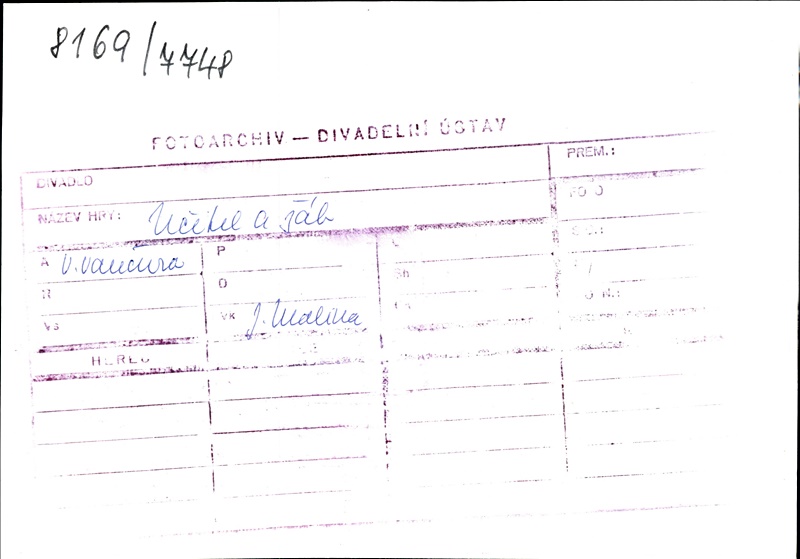 8169/7748
FOTOARCHIV — DIVADELNÍ ÚSTAV
DIVADLO
PREM.:
NÁZEV HRY: Učitel a žák
FOTO
A V. Vančura
P
R
O
Sh
VS
VK J. Malina
HEREC